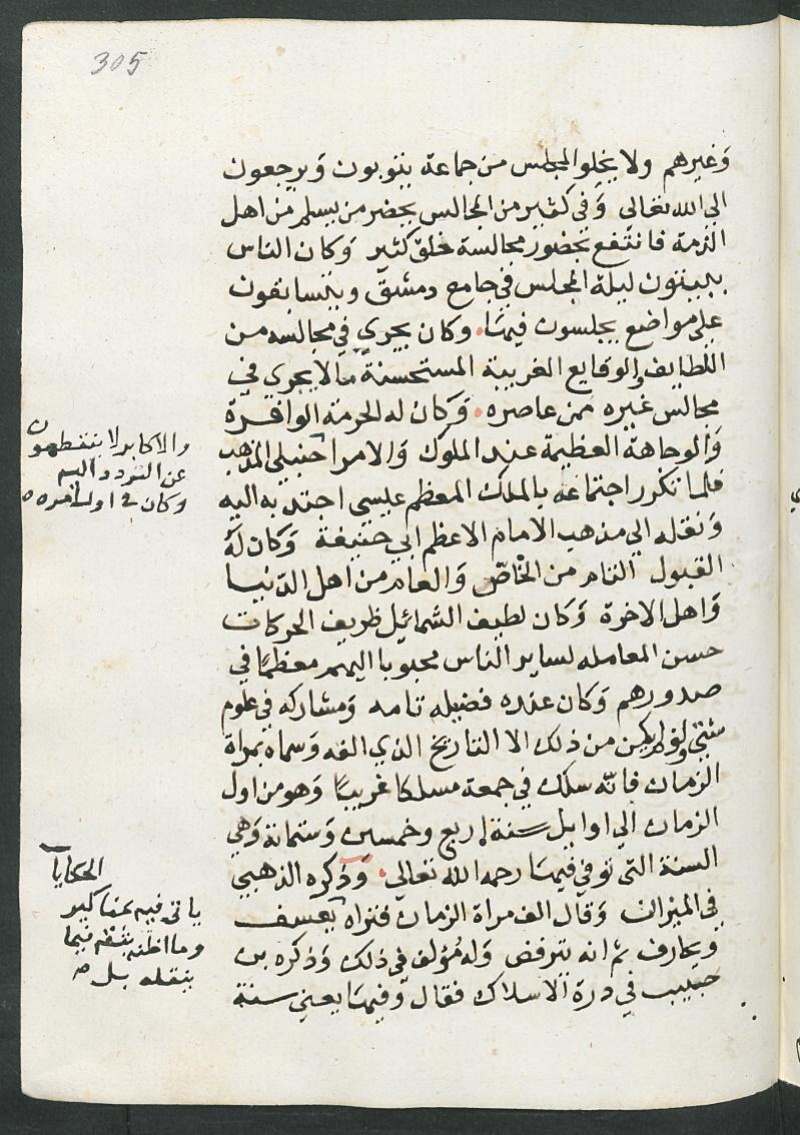 305
وَغيرهم ولا يخلوا المجلس من جماعة يتوبون وَيرجعون
الي الله تعالي وَفي كثير من المجالس يحضر من يسلم من اهل
الذمة فانتفع بحضور مجالسة خلق كثير وَكان الناس
يبيتون ليلة المجلس في جامع دمشق ويتسابقون
علي مواضع يجلسون فيها. وكان يجري في مجالسه من
اللطايف والوقايع الغريبة المستحسنة مالا يجري في
مجالس غيره ممن عاصره. وَكان له الحرمة الوافرة
وَالوجاهة العظيمة عند الملوك وَالامرا حنبلي المذهب
فلما تكرر اجتماعه بالملك المعظم عيسي اجتذبه اليه
وَنقله الي مذهب الامام الاعظم ابي حنيفة وَكان لهُ
القبول التام من الخاصّ وَالعام من اهل الدّنيا
وَاهل الاخرة وَكان لطيف الشمائيل ظريف الحركات
حسن المعامله لساير الناس محبوبا اليهم معظمًا في
صدورهم وَكان عنده فضيله تامه وَمشاركه في علوم
شتي ولو لم يكن من ذلك الا التاريخ الذي الفه وَسماه بمراة
الزمان فانّه سلك في جمعة مسلكا غريبًا وَهو من اول
الزمان الي اوايل سنة اربع وخمسين وَستمائة وَهي
السنة التي توفي فيها رحمه الله تعالي. وَذكره الذهبي
في الميزان وَقال الف مراة الزمان فتراه يعسف
ويجازف ثم انه يترفض وَله مُؤلف في ذلك وَذكره بن
حبيب في درة الاسلاك فقال وَفيها يعني سنة
والاكابر لا ينقطعون
عن التردد اليه
وكان في اول امره
الحكايا
ياتي فيه بمناكير
وما اظنه بثقة فيما
ينقله بل